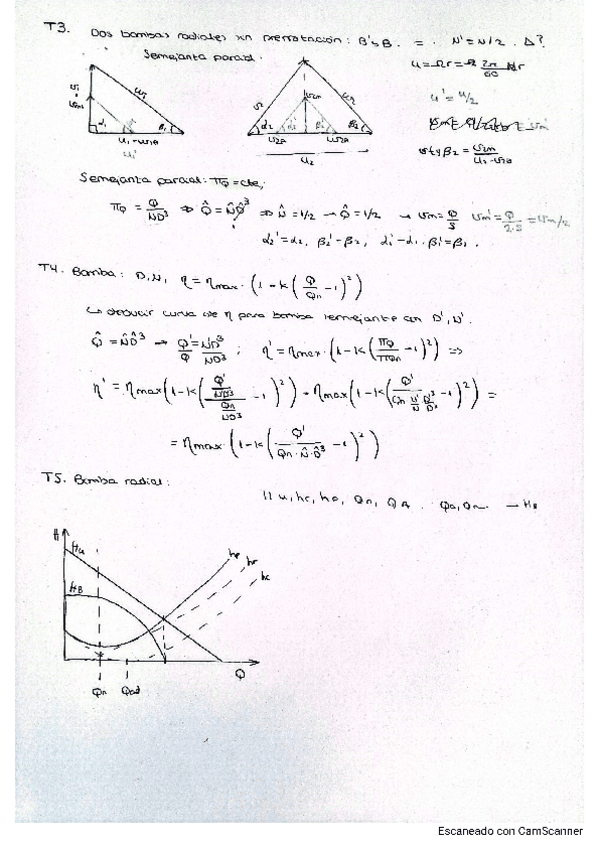 T3. Dos bombas radiales sin prerrotación: B' y B. = . N' = N/2 . Δ?
Semejanza parcial.
u = Ωr = 2π/60 Nr
u' = u/2
α₁ β₁
u₁ - u₁θ
u₁'
α₂ α₂' β₂' β₂
u₂
tgβ₂ = v₂m / (u₂ - v₂θ)
Semejanza parcial: πQ = cte;
πQ = Q/ND³ ⇒ Q̂ = N̂D̂³ ⇒ N̂ = 1/2 → Q̂ = 1/2 → vm = Q/S vm' = Q/2·S = vm/2
α₂' = α₂, β₂' = β₂, α₁' = α₁, β₁' = β₁.
T4. Bomba: D, N, η = ηmax · (1 - K(Q/Qn - 1)²)
↳ deducir curva de η para bomba semejante con D', N'.
Q̂ = N̂D̂³ → Q'/Q = N'D'³/ND³ ; η' = ηmax · (1 - K(πQ/πQn - 1)²) ⇒
η' = ηmax(1 - K((Q'/N'D'³)/(Qn/ND³) - 1)²) = ηmax(1 - K(Q'/(Qn N'/N D'³/D³) - 1)²) =
= ηmax · (1 - K(Q'/(Qn · N̂ · D̂³) - 1)²)
T5. Bomba radial:
Qn, QA
→ HB
H
Hu
HB
hp
hr
hc
Qn Qad Q
Escaneado con CamScanner